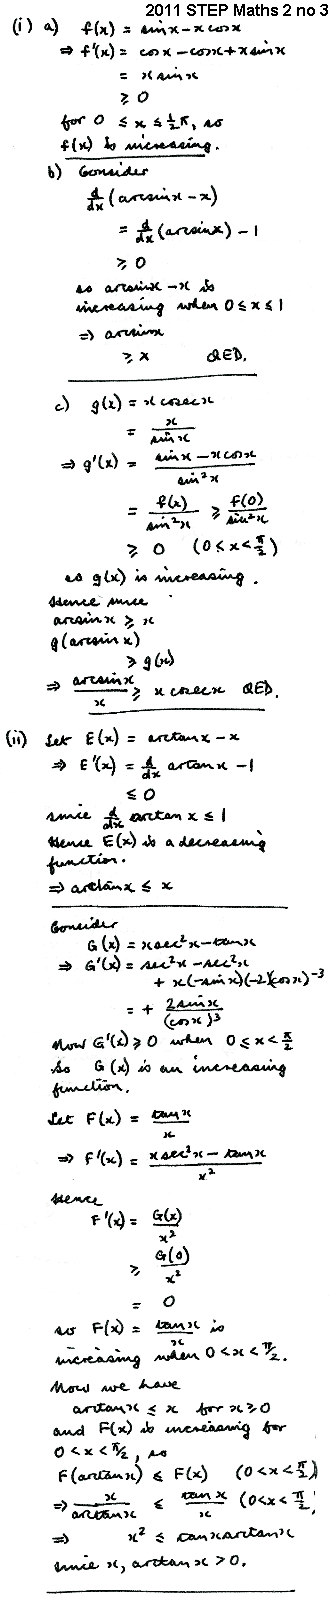 2011 STEP Maths 2 no 3
(i) a) f(x) = sinx - xcosx
⇒ f'(x) = cosx - cosx + xsinx
= xsinx
≥ 0
for 0 ≤ x ≤ ½π, so
f(x) is increasing.
b) Consider
d/dx (arcsinx - x)
= d/dx (arcsinx) - 1
≥ 0
so arcsinx - x is
increasing when 0 ≤ x ≤ 1
⇒ arcsinx
≥ x QED.
c) g(x) = x cosecx
= x/sinx
⇒ g'(x) = (sinx - xcosx)/sin²x
= f(x)/sin²x ≥ f(0)/sin²x
≥ 0 (0 < x < π/2)
so g(x) is increasing.
Hence since
arcsinx ≥ x
g(arcsinx)
≥ g(x)
⇒ arcsinx/x ≥ x cosecx QED.
(ii) Let E(x) = arctanx - x
⇒ E'(x) = d/dx artanx - 1
≤ 0
since d/dx arctanx ≤ 1
Hence E(x) is a decreasing
function.
⇒ arctanx ≤ x
Consider
G(x) = xsec²x - tanx
⇒ G'(x) = sec²x - sec²x
+ x(-sinx)(-2)(cosx)⁻³
= + 2sinx/(cosx)³
Now G'(x) ≥ 0 when 0 ≤ x < π/2
So G(x) is an increasing
function.
Let F(x) = tanx/x
⇒ F'(x) = (xsec²x - tanx)/x²
Hence
F'(x) = G(x)/x²
≥ G(0)/x²
= 0
so F(x) = tanx/x is
increasing when 0 < x < π/2.
Now we have
arctanx ≤ x for x ≥ 0
and F(x) is increasing for
0 < x < π/2, so
F(arctanx) ≤ F(x) (0 < x < π/2)
⇒ x/arctanx ≤ tanx/x (0 < x < π/2)
⇒ x² ≤ tanxarctanx
since x, arctanx > 0.